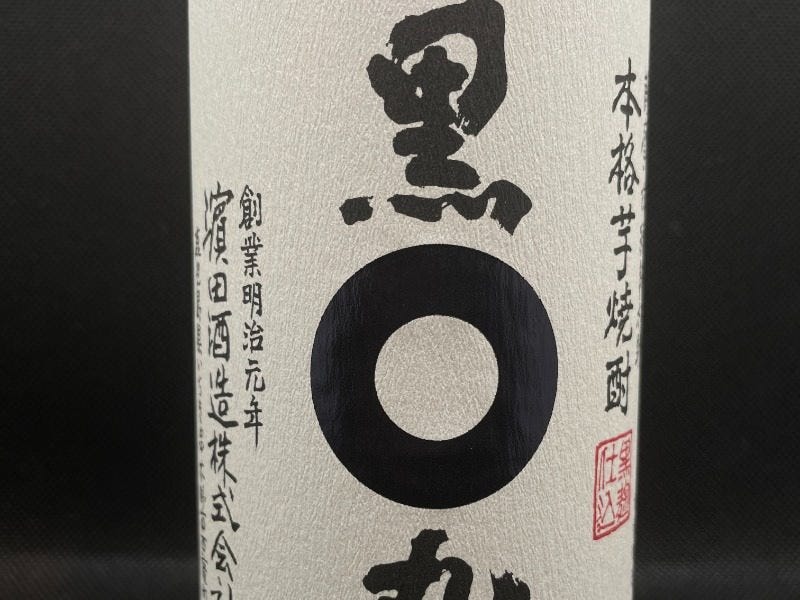 本格芋焼酎
黒麹
仕込
黒
創業明治元年
濵田酒造株式会